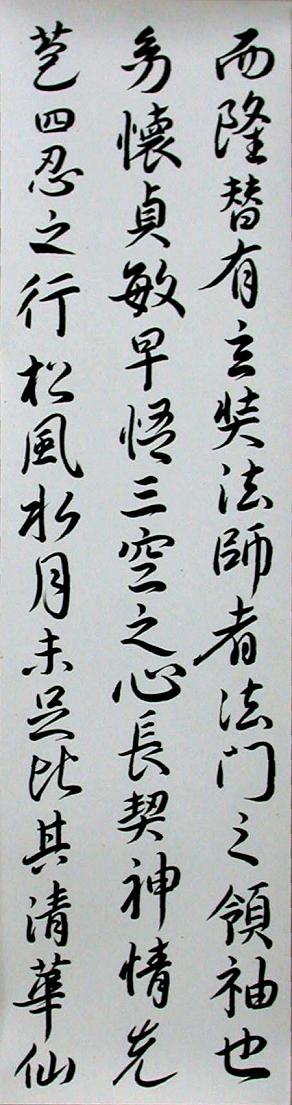 而隆替有玄奘法師者法門之領袖也
㓜懷貞敏早悟三空之心長契神情先
苞四忍之行松風水月未足比其清華仙